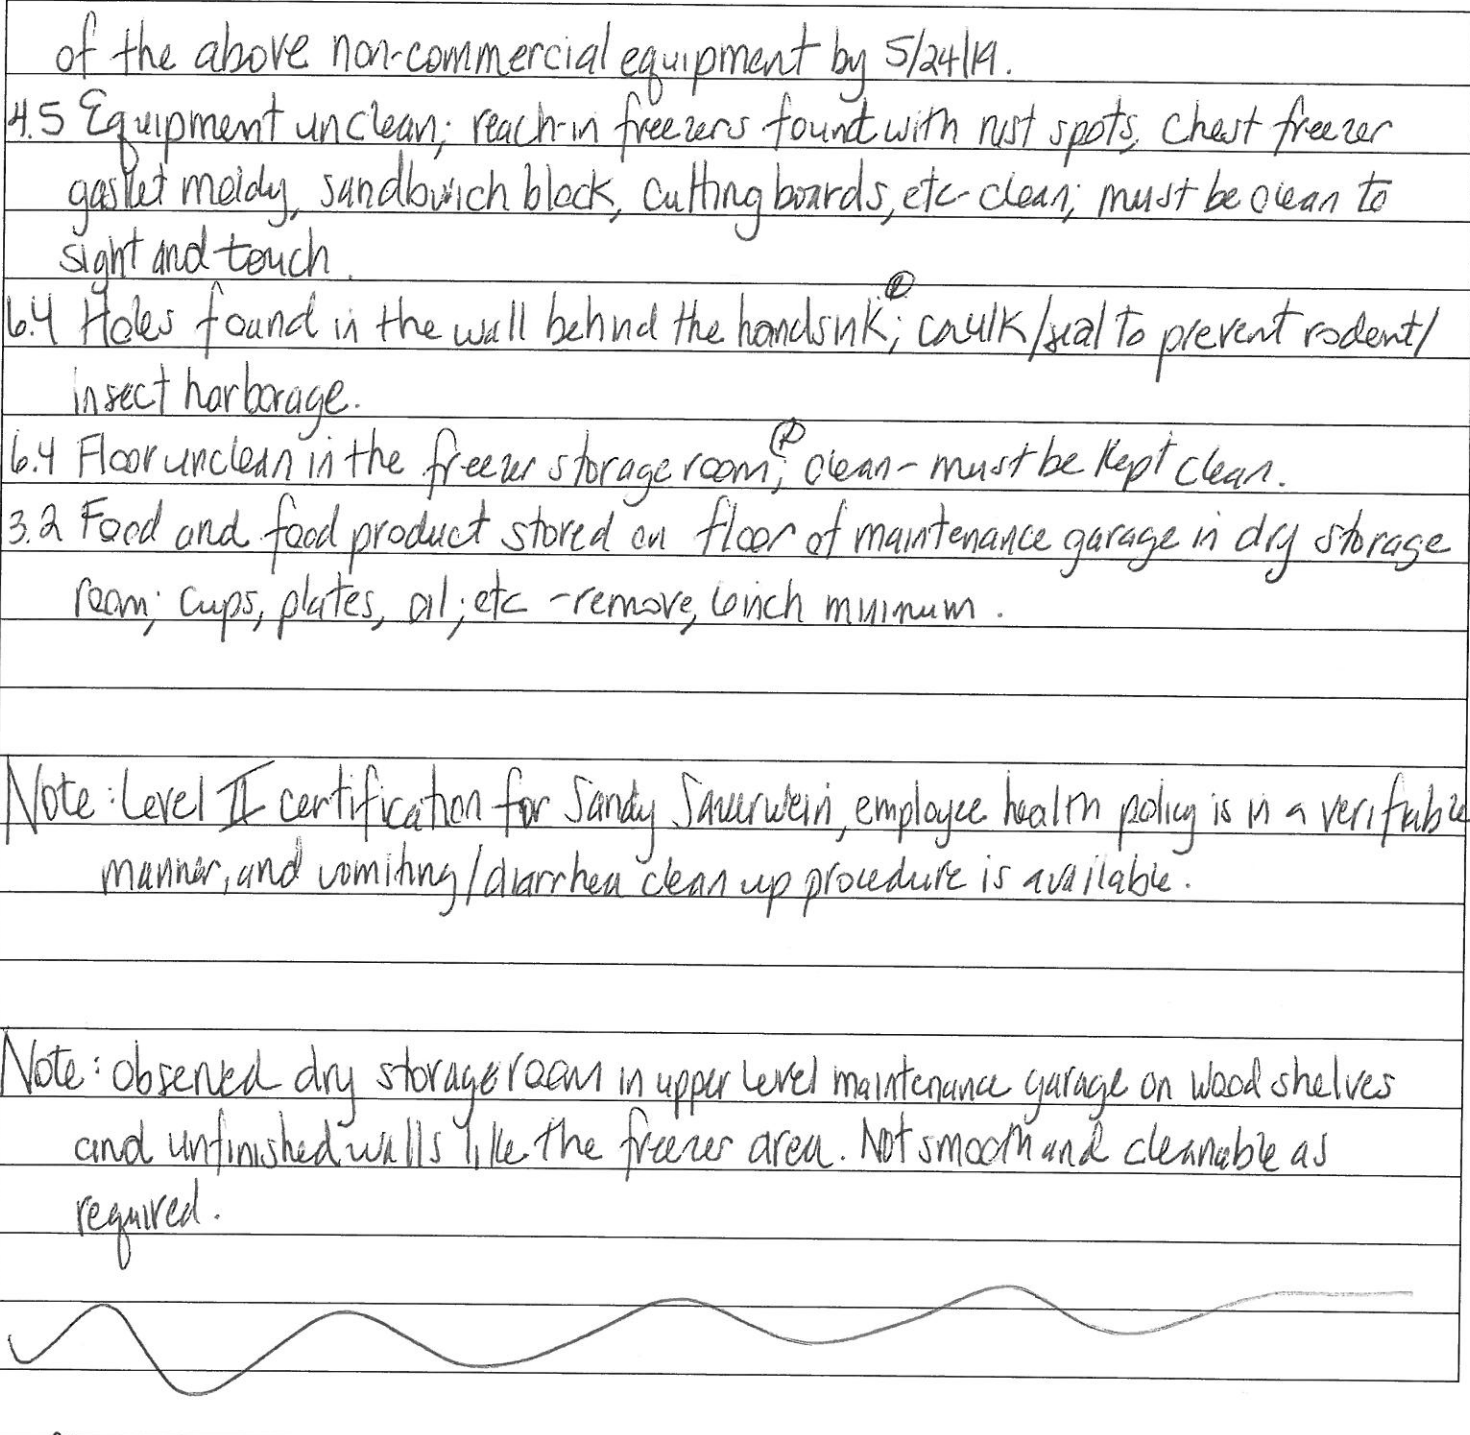 of the above non-commercial equipment by 5/24/19.
4.5 Equipment unclean; reach-in freezers found with rust spots, chest freezer
gasket moldy, sandbwich block, cutting boards, etc - clean; must be clean to
sight and touch.
6.4 Holes found in the wall behind the handsink; Ⓡ caulk/seal to prevent rodent/
insect harborage.
6.4 Floor unclean in the freezer storage room; Ⓡ clean - must be kept clean.
3.2 Food and food product stored on floor of maintenance garage in dry storage
room; cups, plates, oil; etc - remove, 6 inch minimum.
Note: Level II certification for Sandy Sauerwein, employee health policy is in a verifiable
manner, and vomiting/diarrhea clean up procedure is available.
Note: observed dry storage room in upper level maintenance garage on wood shelves
and unfinished walls like the freezer area. Not smooth and cleanable as
required.